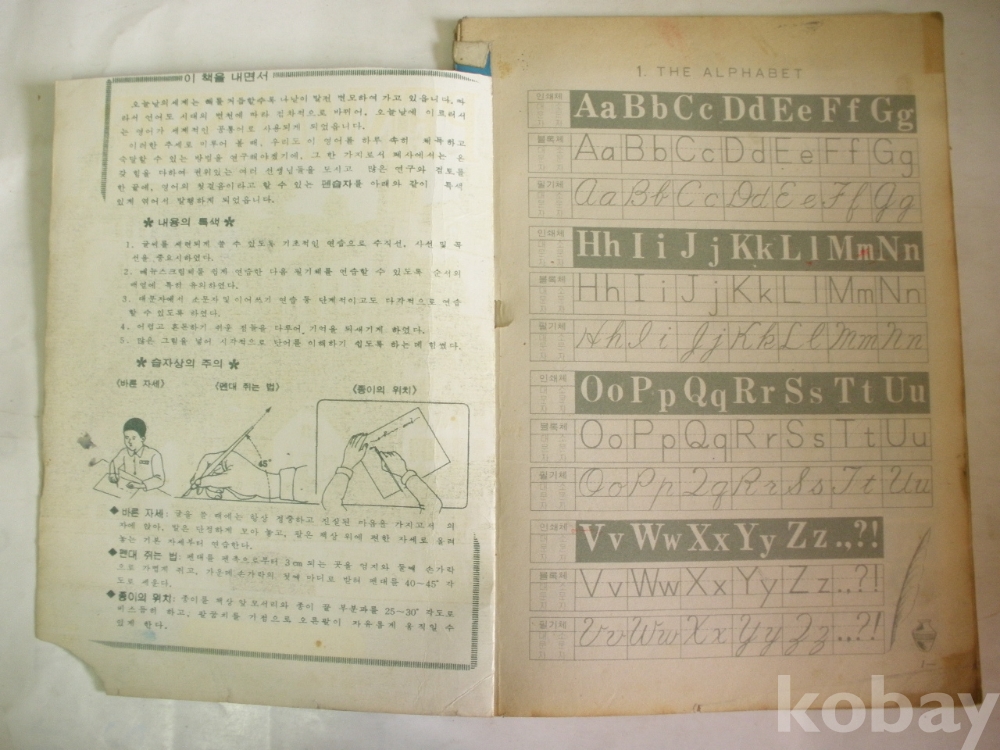 이 책을 내면서
오늘날의 세계는 해를 거듭할수록 나날이 발전 면모하여 가고 있읍니다. 따
라서 언어도 시대의 변천에 따라 점차적으로 바뀌어, 오늘날에 이르러서
는 영어가 세계적인 공통어로 사용되게 되었읍니다.
이러한 추세로 미루어 볼 때, 우리도 이 영어를 하루 속히 습득하고
수많은 여러 선생님들을 모시고 많은 연구와 검토를
한 끝에, 영어의 첫걸음이라고 할 수 있는 펜습자를 아래와 같이 특색
있게 엮어서 발행하게 되었읍니다.
✽ 내용의 특색 ✽
1. 글씨를 세련되게 쓸 수 있도록 기초적인 연습으로 수직선, 사선 및 곡
선을 중요시하였다.
2. 쉽게 연습한 다음 필기체를 연습할 수 있도록 순서의
배열에 특히 유의하였다.
3. 대문자에서 소문자 및 이어쓰기 연습을 단계적이고도 다각적으로 연습
할 수 있도록 하였다.
4. 어렵고 혼돈하기 쉬운 점들을 다루어, 기억을 되새기게 하였다.
5. 많은 그림을 넣어 시각적으로 단어를 이해하기 쉽도록 하는데 힘썼다.
✽ 습자상의 주의 ✽
〈바른 자세〉 〈펜대 쥐는 법〉 〈종이의 위치〉
45°
◆바른 자세: 글을 쓸 때에는 항상 침착하고 진실된 마음을 가지고서 의
자에 앉아, 발은 단정하게 모아 놓고, 팔은 책상 위에 편한 자세로 올려
놓는 기본 자세부터 연습한다.
◆펜대 쥐는 법: 펜대를 펜촉으로부터 3cm 되는 곳을 엄지와 둘째 손가락
으로 가볍게 쥐고, 가운데 손가락의 첫째 마디로 받쳐 펜대를 40~45° 각
도로 세운다.
◆종이의 위치: 종이를 책상 앞모서리와 종이 끝 부분과를 25~30° 각도로
비스듬히 하고, 팔꿈치를 기점으로 오른팔이 자유롭게 움직일 수
있게 한다.
1. THE ALPHABET
인쇄체 Aa Bb Cc Dd Ee Ff Gg
블록체 Aa Bb Cc Dd Ee Ff Gg
필기체 Aa Bb Cc Dd Ee Ff Gg
인쇄체 Hh Ii Jj Kk Ll Mm Nn
블록체 Hh Ii Jj Kk Ll Mm Nn
필기체 Hh Ii Jj Kk Ll Mm Nn
인쇄체 Oo Pp Qq Rr Ss Tt Uu
블록체 Oo Pp Qq Rr Ss Tt Uu
필기체 Oo Pp Qq Rr Ss Tt Uu
인쇄체 Vv Ww Xx Yy Zz .,?!
블록체 Vv Ww Xx Yy Zz .,?!
필기체 Vv Ww Xx Yy Zz .,?!
kobay